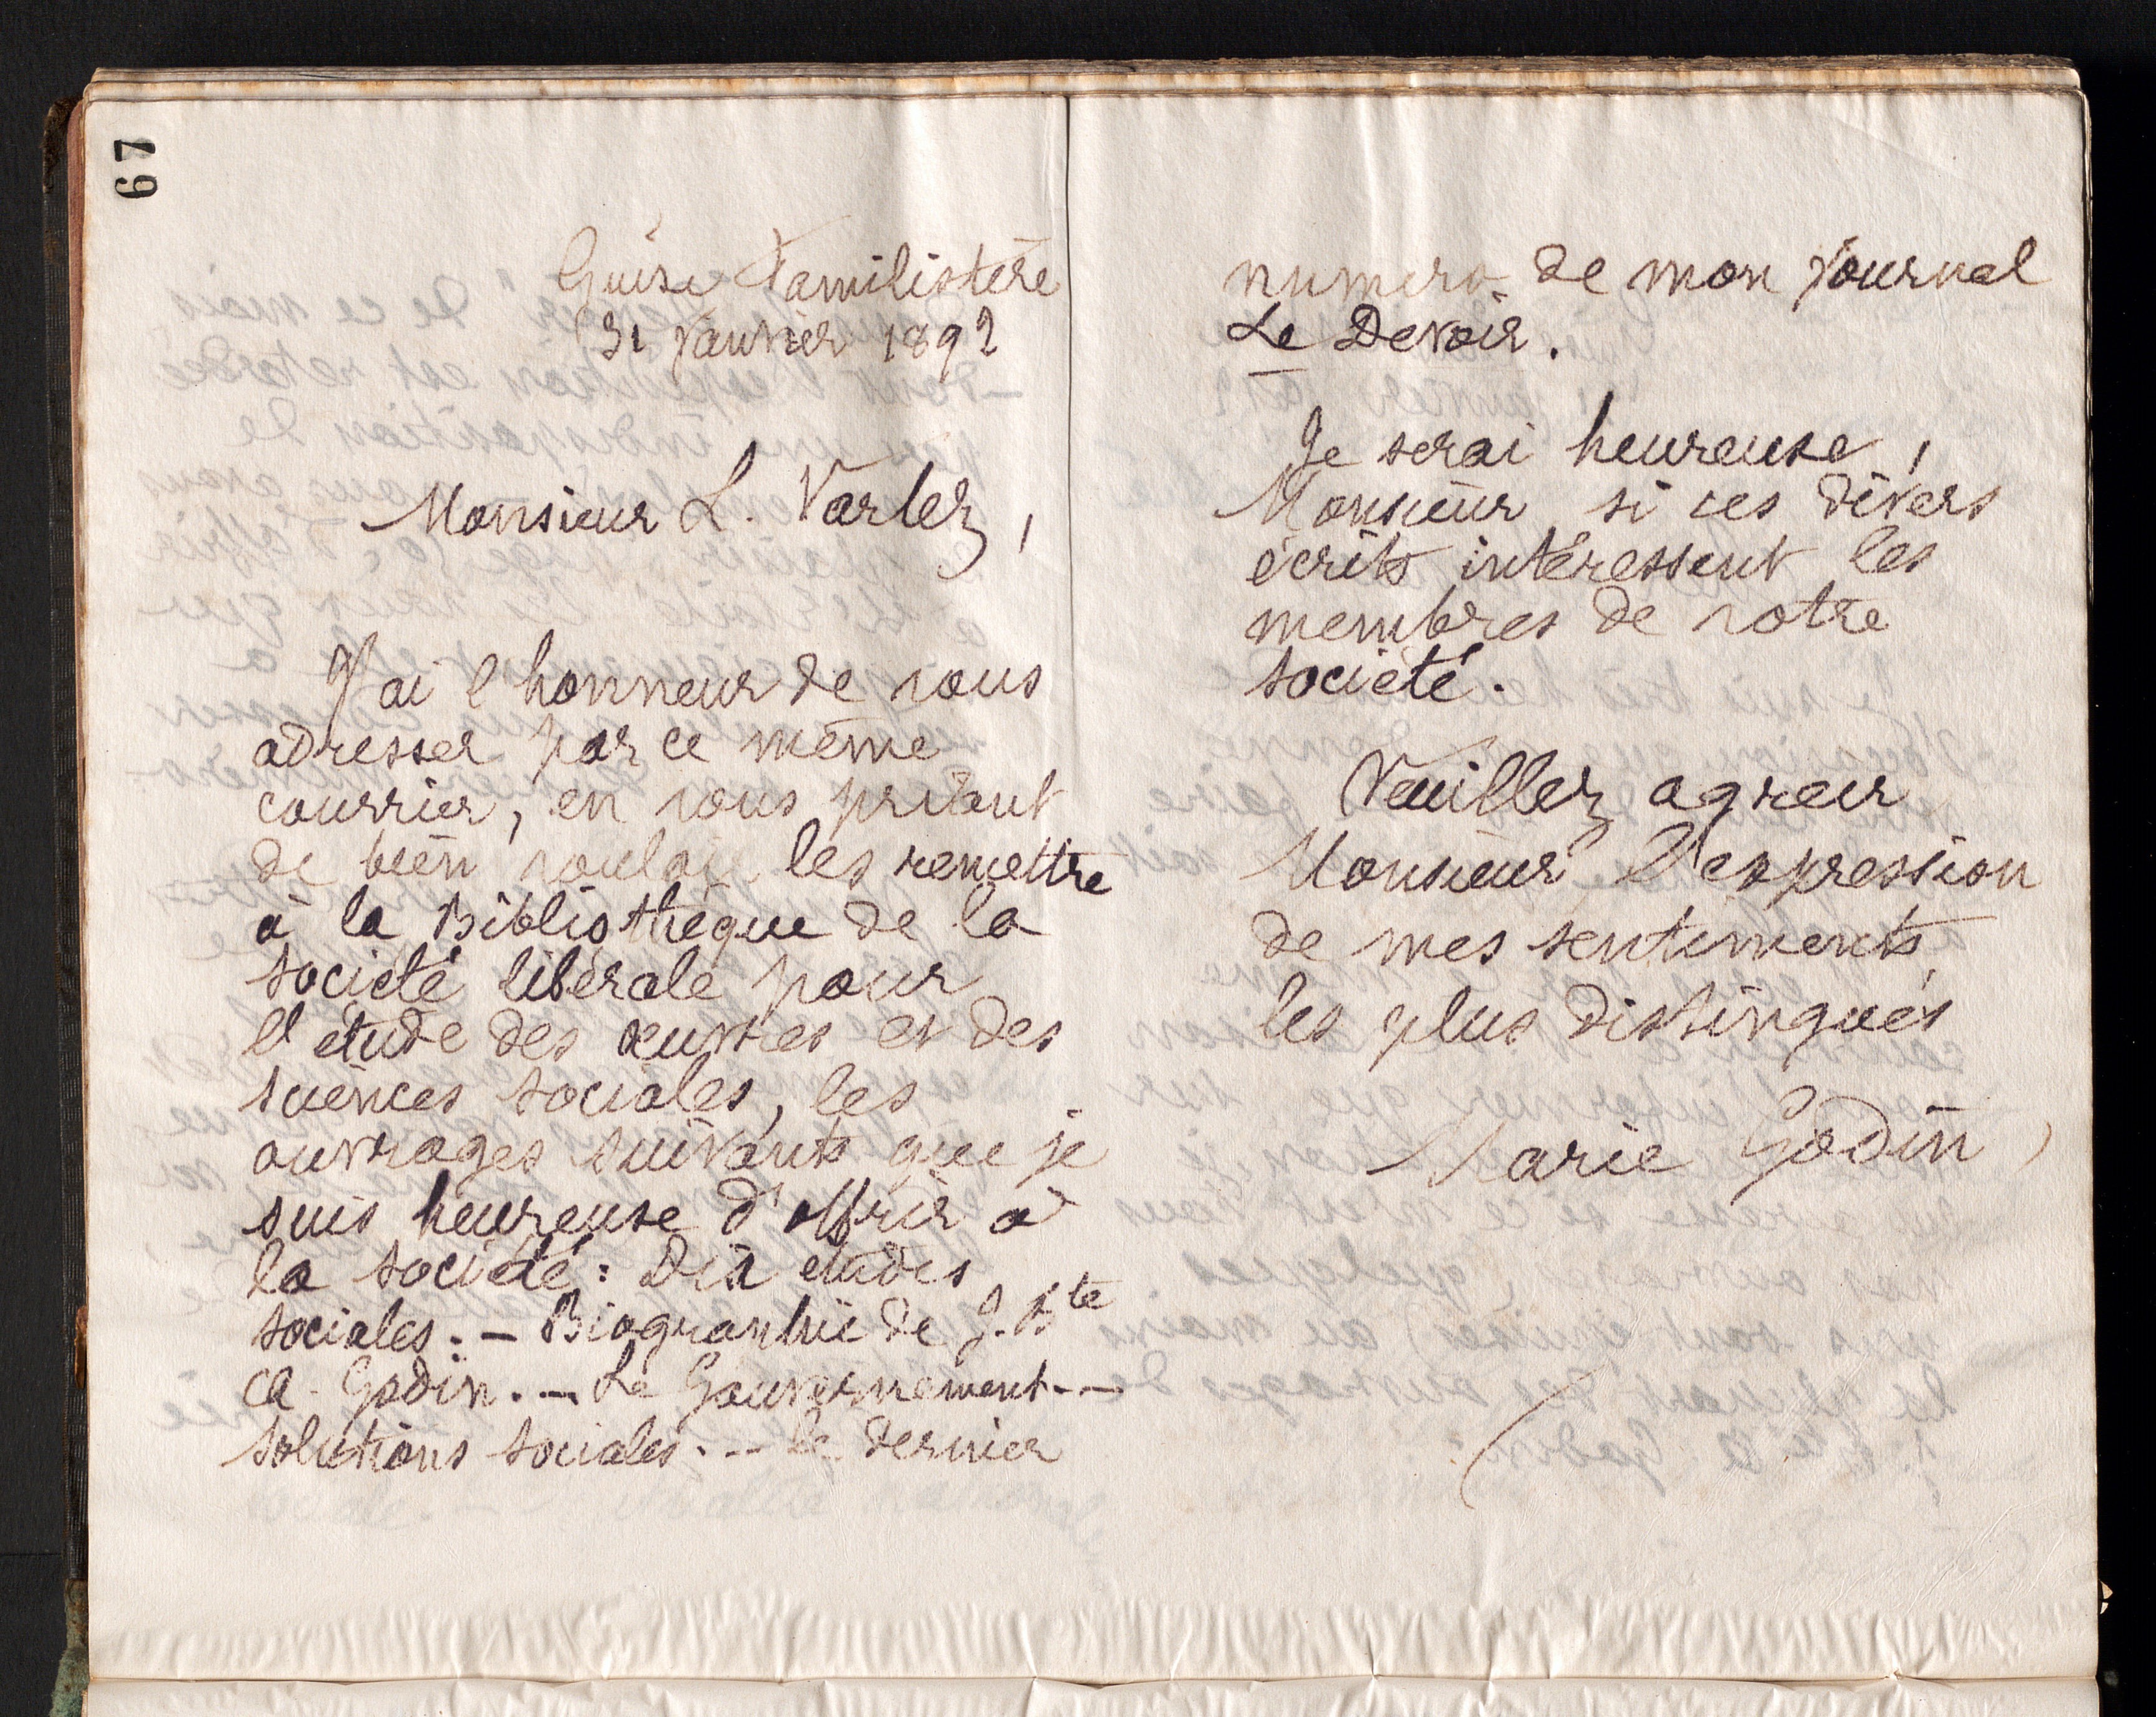 79
Guise Familistère
31 Janvier 1892
Monsieur L. Varlez,
J'ai l'honneur de vous
adresser par ce même
courrier, en vous priant
de bien vouloir les remettre
à la Bibliothèque de la
société libérale pour
l'étude des œuvres et des
sciences sociales, les
ouvrages suivants que je
suis heureuse d'offrir à
la société : Dix études
sociales. — Biographie de J. Bte
A. Godin. — Le Gouvernement. —
Solutions sociales. — le dernier
numéro de mon journal
Le Devoir.
Je serai heureuse,
Monsieur, si ces divers
écrits intéressent les
membres de votre
société.
Veuillez agréer
Monsieur l'expression
de mes sentiments
les plus distingués
Marie Godin